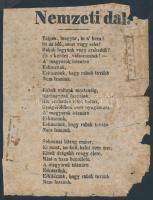 Nemzeti dal.
Talpra, magyar, hí a' haza!
Itt az idő, most vagy soha!
Rabok legyünk vagy szabadok?
Ez a' kérdés, válasszatok! —
A' magyarok istenére
Esküszünk,
Esküszünk, hogy rabok tovább
Nem leszünk.
Rabok voltunk mostanáig,
Kárhozottak ősapáink,
Kik szabadon éltek haltak,
Szolgaföldben nem nyughatnak.
A' magyarok istenére
Esküszünk,
Esküszünk, hogy rabok tovább
Nem leszünk.
Sehonnai bitang ember,
Ki most, ha kell, halni nem mer,
Kinek drágább rongy élete,
Mint a' haza becsülete.
A' magyarok istenére
Esküszünk,
Esküszünk, hogy rabok tovább
Nem leszünk.